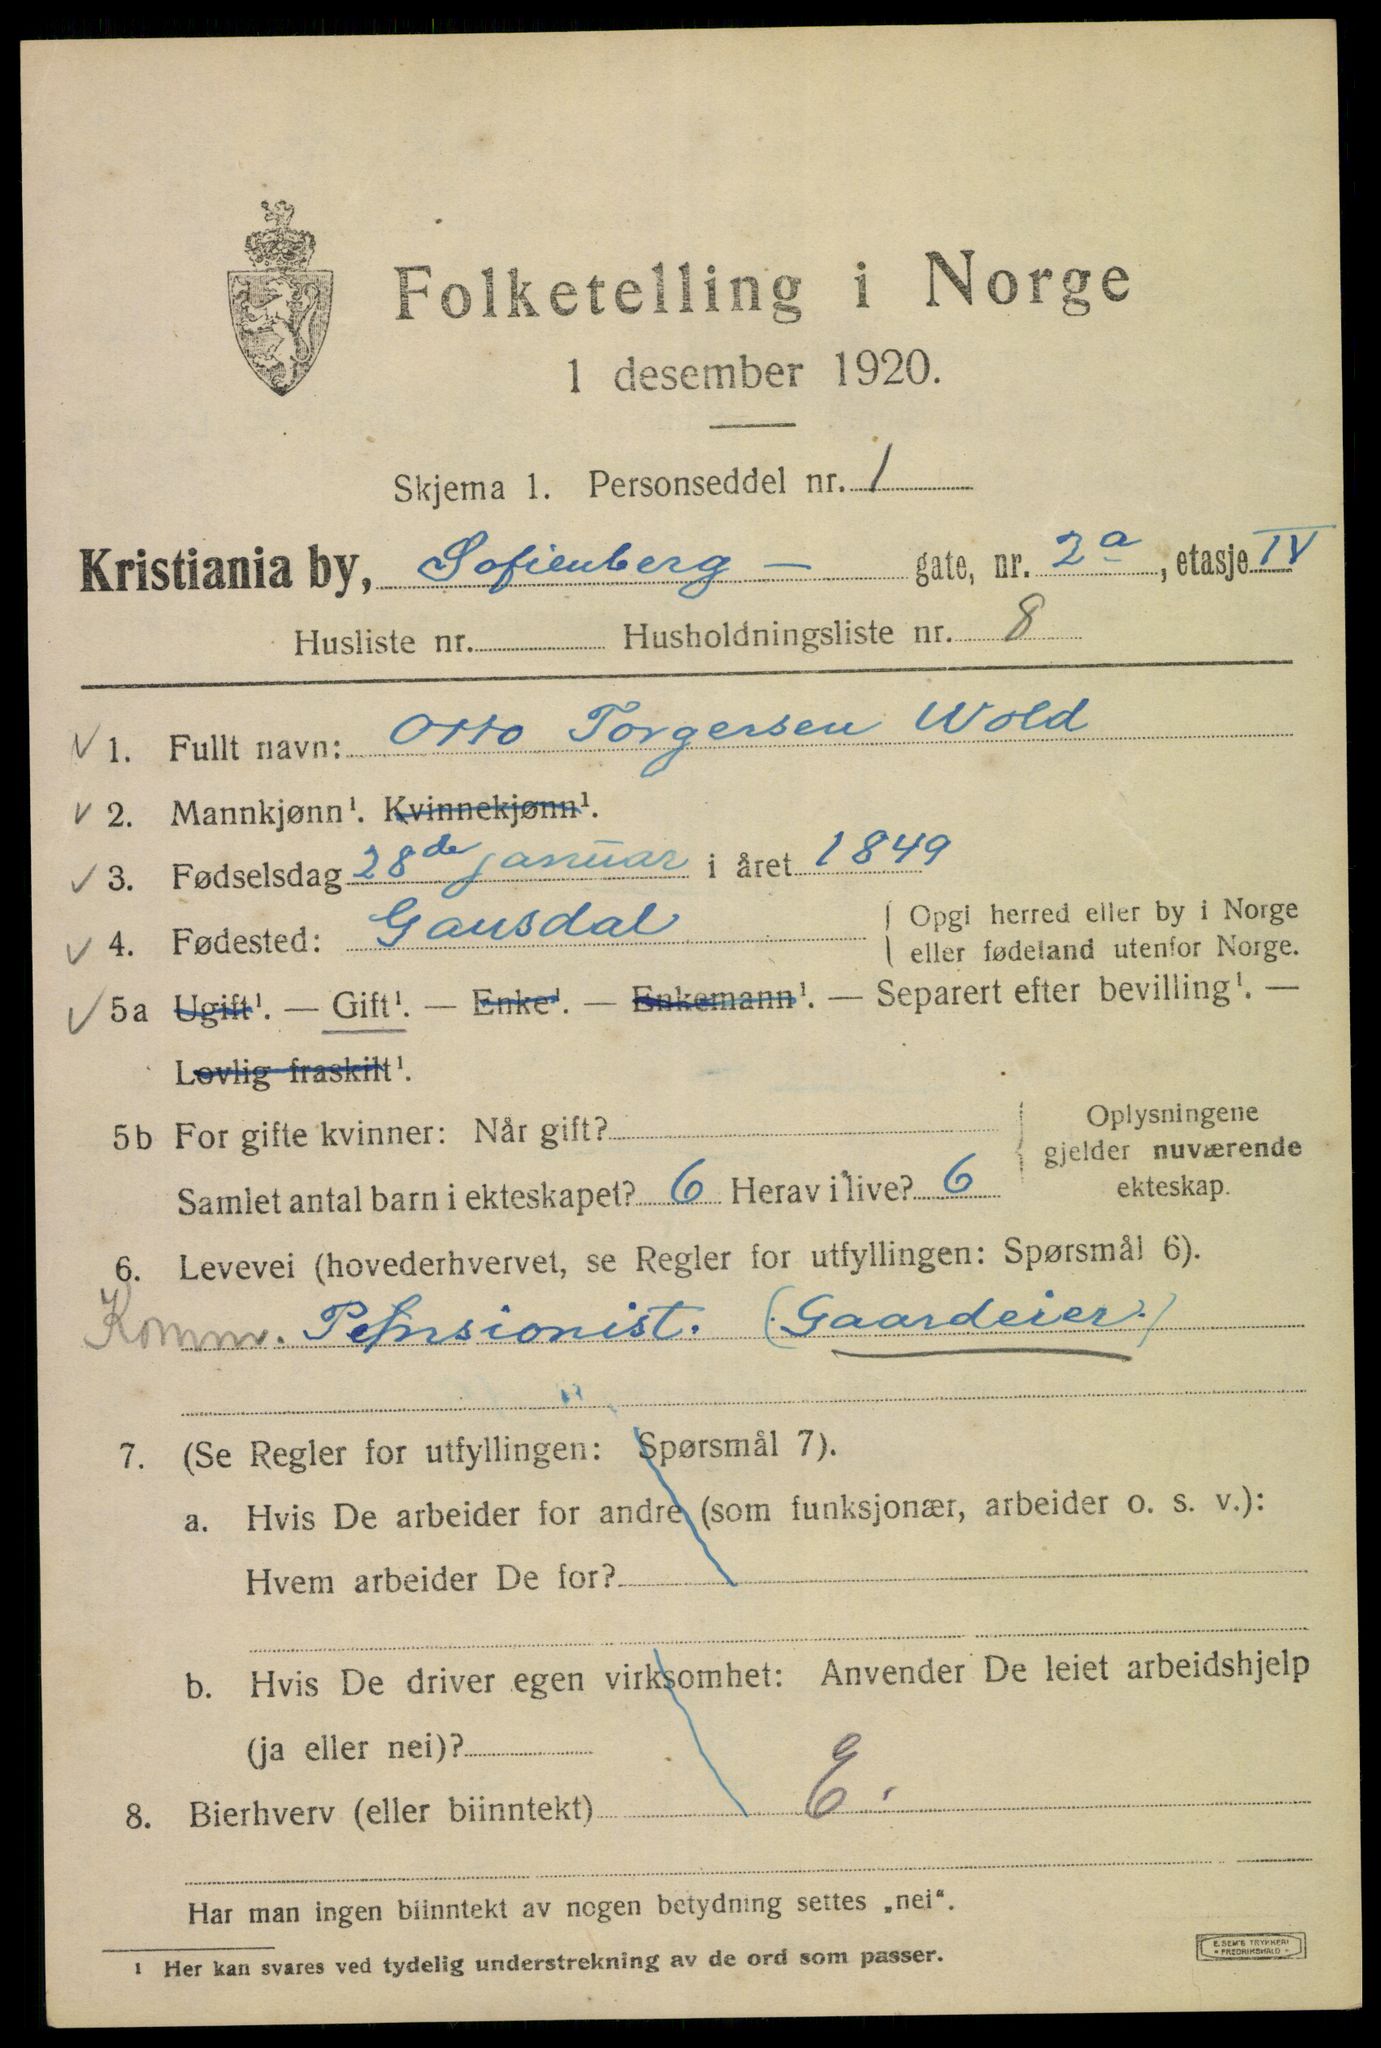 Folketelling i Norge
1 desember 1920.
Skjema 1. Personseddel nr. 1
Kristiania by, Sofienberg — gate, nr. 2a, etasje IV
Husliste nr. Husholdningsliste nr. 8
√ 1. Fullt navn: Otto Torgersen Wold
√ 2. Mannkjønn¹. Kvinnekjønn¹.
√ 3. Fødselsdag 28de januar i året 1849
√ 4. Fødested: Gausdal { Opgi herred eller by i Norge
eller fødeland utenfor Norge.
√ 5a Ugift¹. — Gift¹. — Enke¹. — Enkemann¹. — Separert efter bevilling¹. —
Lovlig fraskilt¹.
5b For gifte kvinner: Når gift?
Samlet antal barn i ekteskapet? 6 Herav i live? 6
Oplysningene
gjelder nuværende
ekteskap.
6. Levevei (hovederhvervet, se Regler for utfyllingen: Spørsmål 6).
Komm. Pensionist. (Gaardeier.)
7. (Se Regler for utfyllingen: Spørsmål 7).
a. Hvis De arbeider for andre (som funksjonær, arbeider o. s. v.):
Hvem arbeider De for?
b. Hvis De driver egen virksomhet: Anvender De leiet arbeidshjelp
(ja eller nei)?
8. Bierhverv (eller biinntekt) E.
Har man ingen biinntekt av nogen betydning settes „nei“.
¹ Her kan svares ved tydelig understrekning av de ord som passer.
E. SEM'S TRYKKERI
• FREDRIKSHALD •